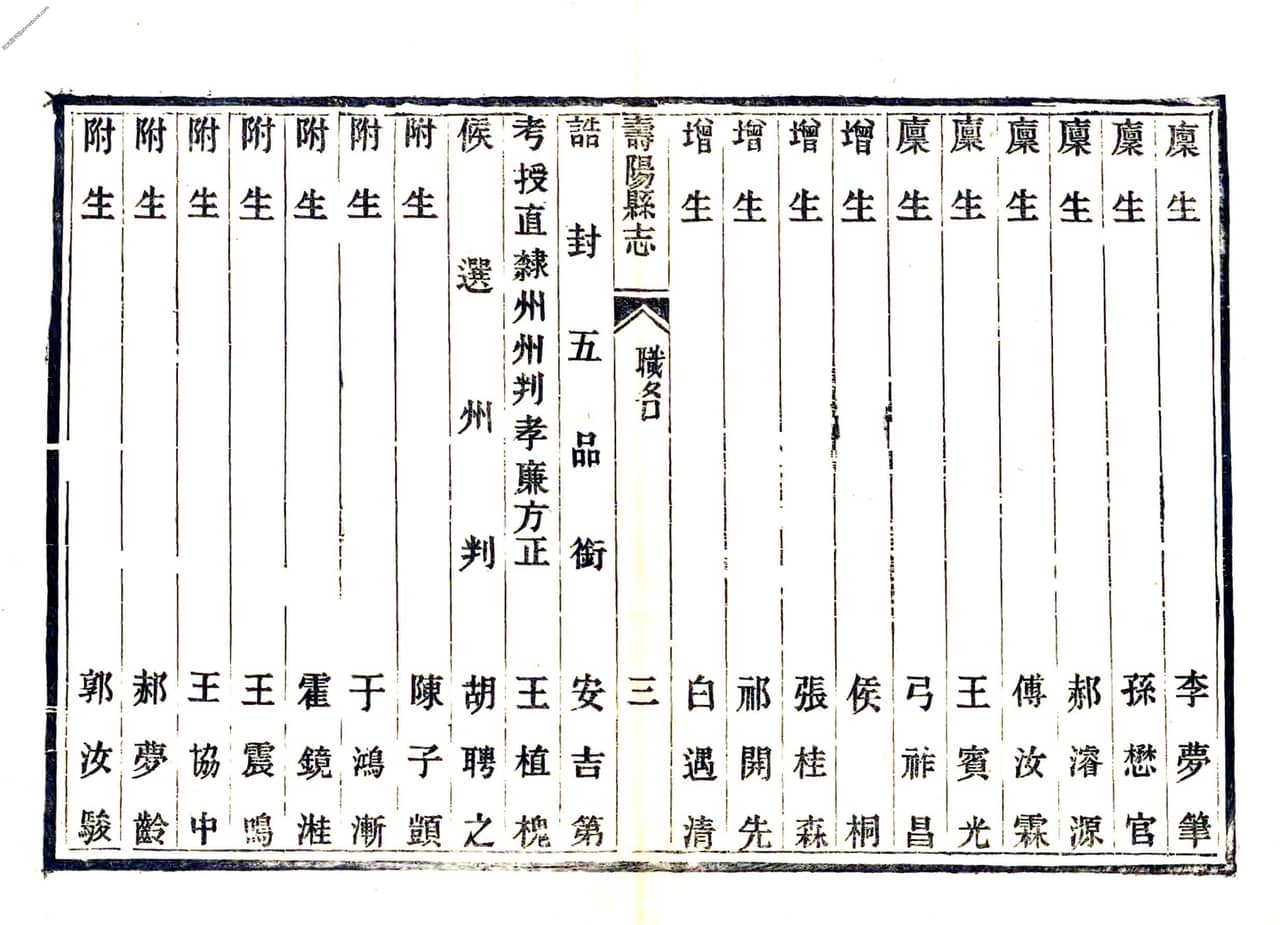 廩生 李夢筆
廩生 孫懋官
廩生 郝濬源
廩生 傅汝霖
廩生 王賓光
廩生 弓祚昌
增生 侯桐
增生 張桂森
增生 祁開先
增生 白遇清
壽陽縣志 職名 三
誥封五品銜 安吉第
考授直隸州州判孝廉方正 王植槐
候選州判 胡聘之
附生 陳子顗
附生 于鴻漸
附生 霍鏡溎
附生 王震鳴
附生 王協中
附生 郝夢齡
附生 郭汝駿